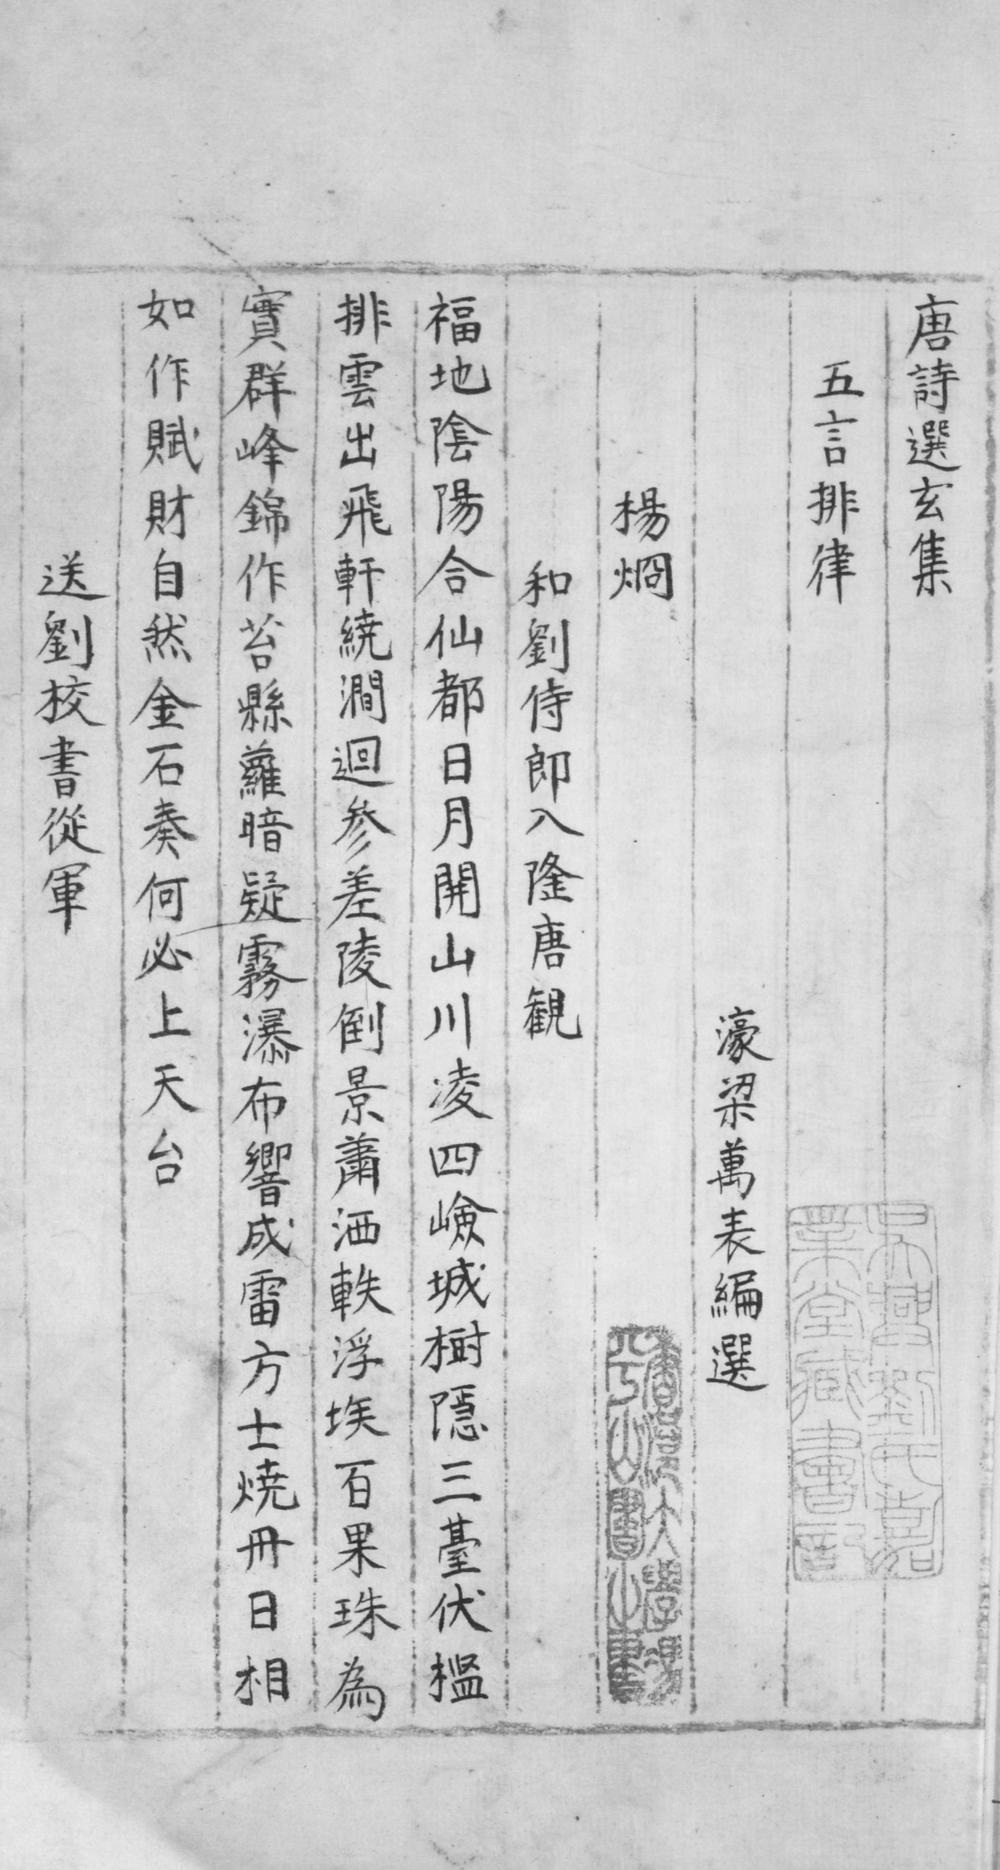 唐詩選玄集
五言排律
濠梁萬表編選
楊烱
和劉侍郎入隆唐観
福地陰陽合仙都日月開山川凌四嶮城樹隠三臺伏檻
排雲出飛軒繞澗迴參差陵倒景蕭洒軼浮埃百果珠為
實群峰錦作苔縣蘿暗疑霧瀑布響成雷方士燒冊日相
如作賦財自然金石奏何必上天台
送劉校書從軍
吳興劉氏嘉
業堂藏書記